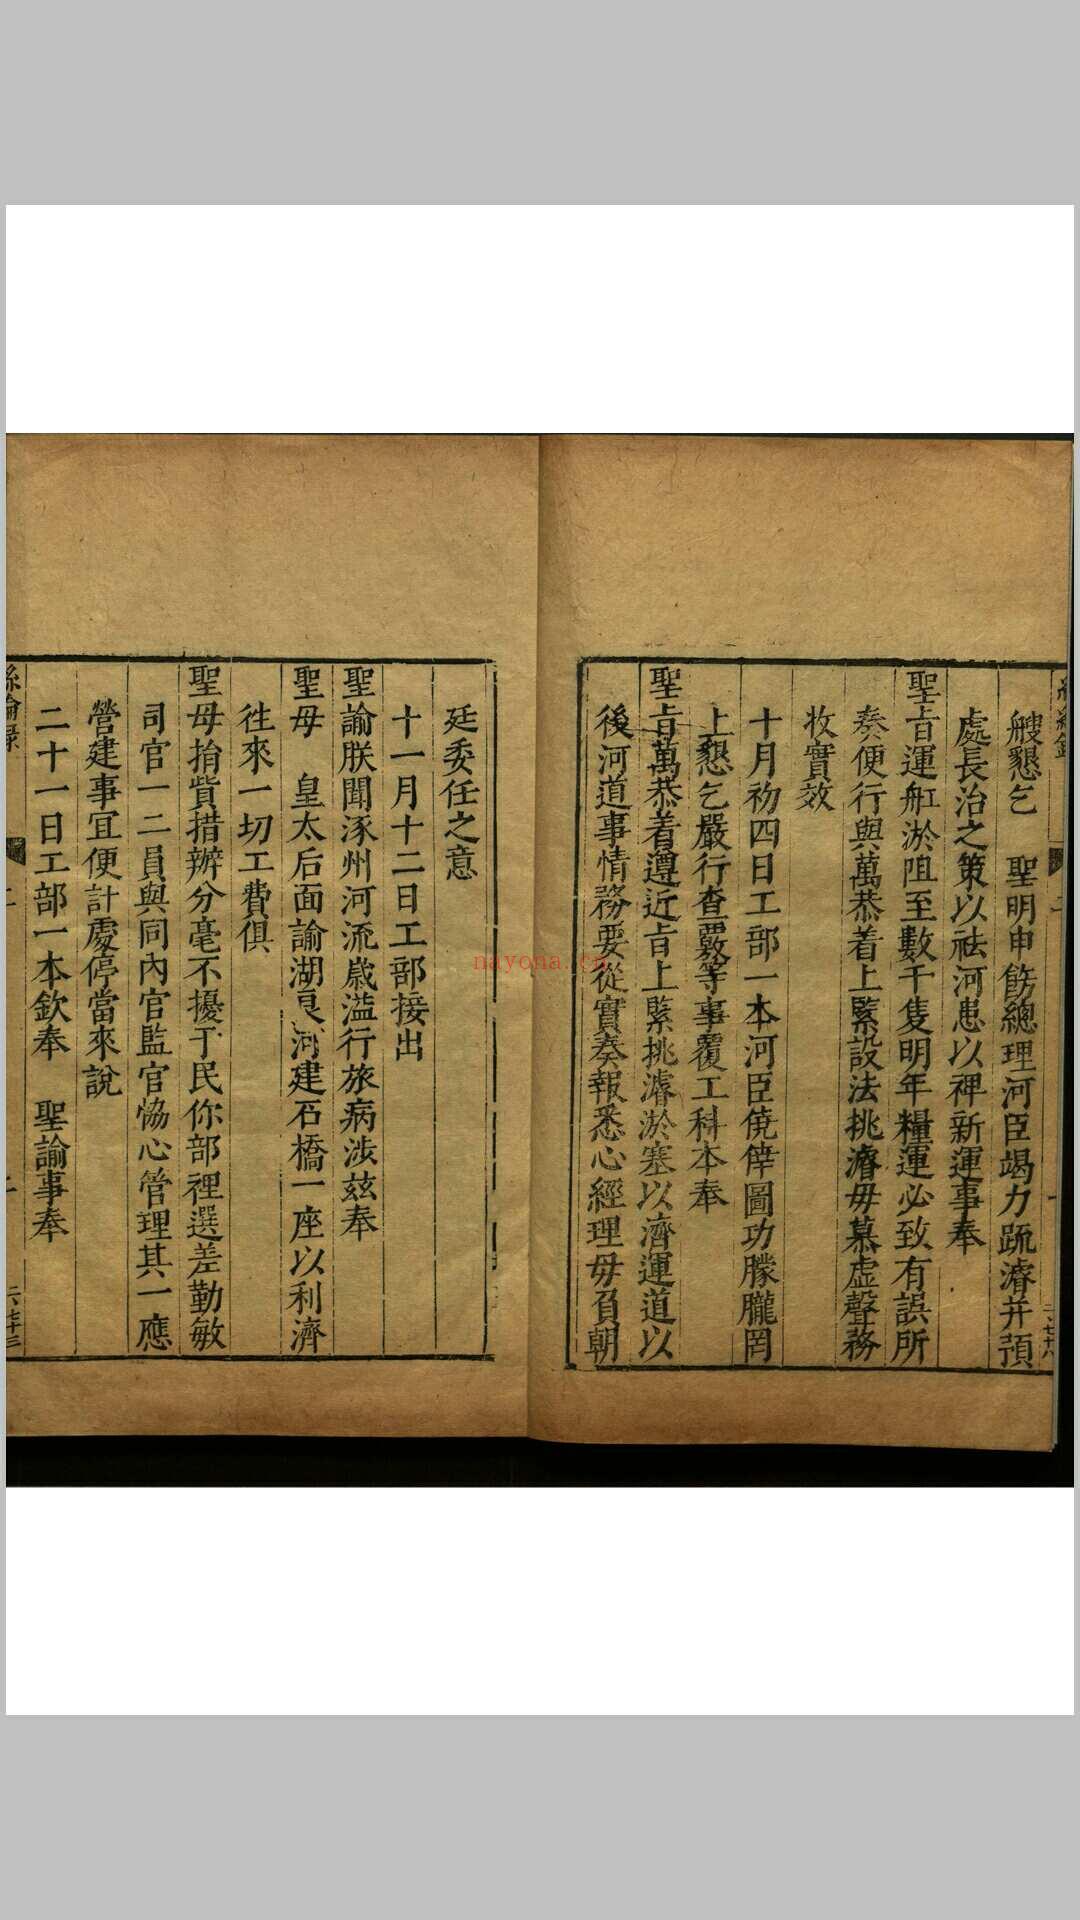 艘懇乞　聖明申飭總理河臣竭力疏濬并預
處長治之策以祛河患以裨新運事奉
聖旨運舡淤阻至數千隻明年糧運必致有誤所
奏便行與萬恭着上緊設法挑濬毋慕虛聲務
收實效
十月初四日工部一本河臣僥倖圖功朦朧罔
上懇乞嚴行查覈等事覆工科本奉
聖旨萬恭着遵近旨上緊挑濬淤塞以濟運道以
後河道事情務要從實奏報悉心經理毋負朝
廷委任之意
十一月十二日工部接出
聖諭朕聞涿州河流歲溢行旅病涉茲奉
聖母　皇太后面諭湖良河建石橋一座以利濟
徃來一切工費俱
聖母捐貲措辦分毫不擾于民你部裡選差勤敏
司官一二員與同內官監官恊心管理其一應
營建事宜便計處停當來說
二十一日工部一本欽奉　聖諭事奉
絲綸錄
二
nayona.cn